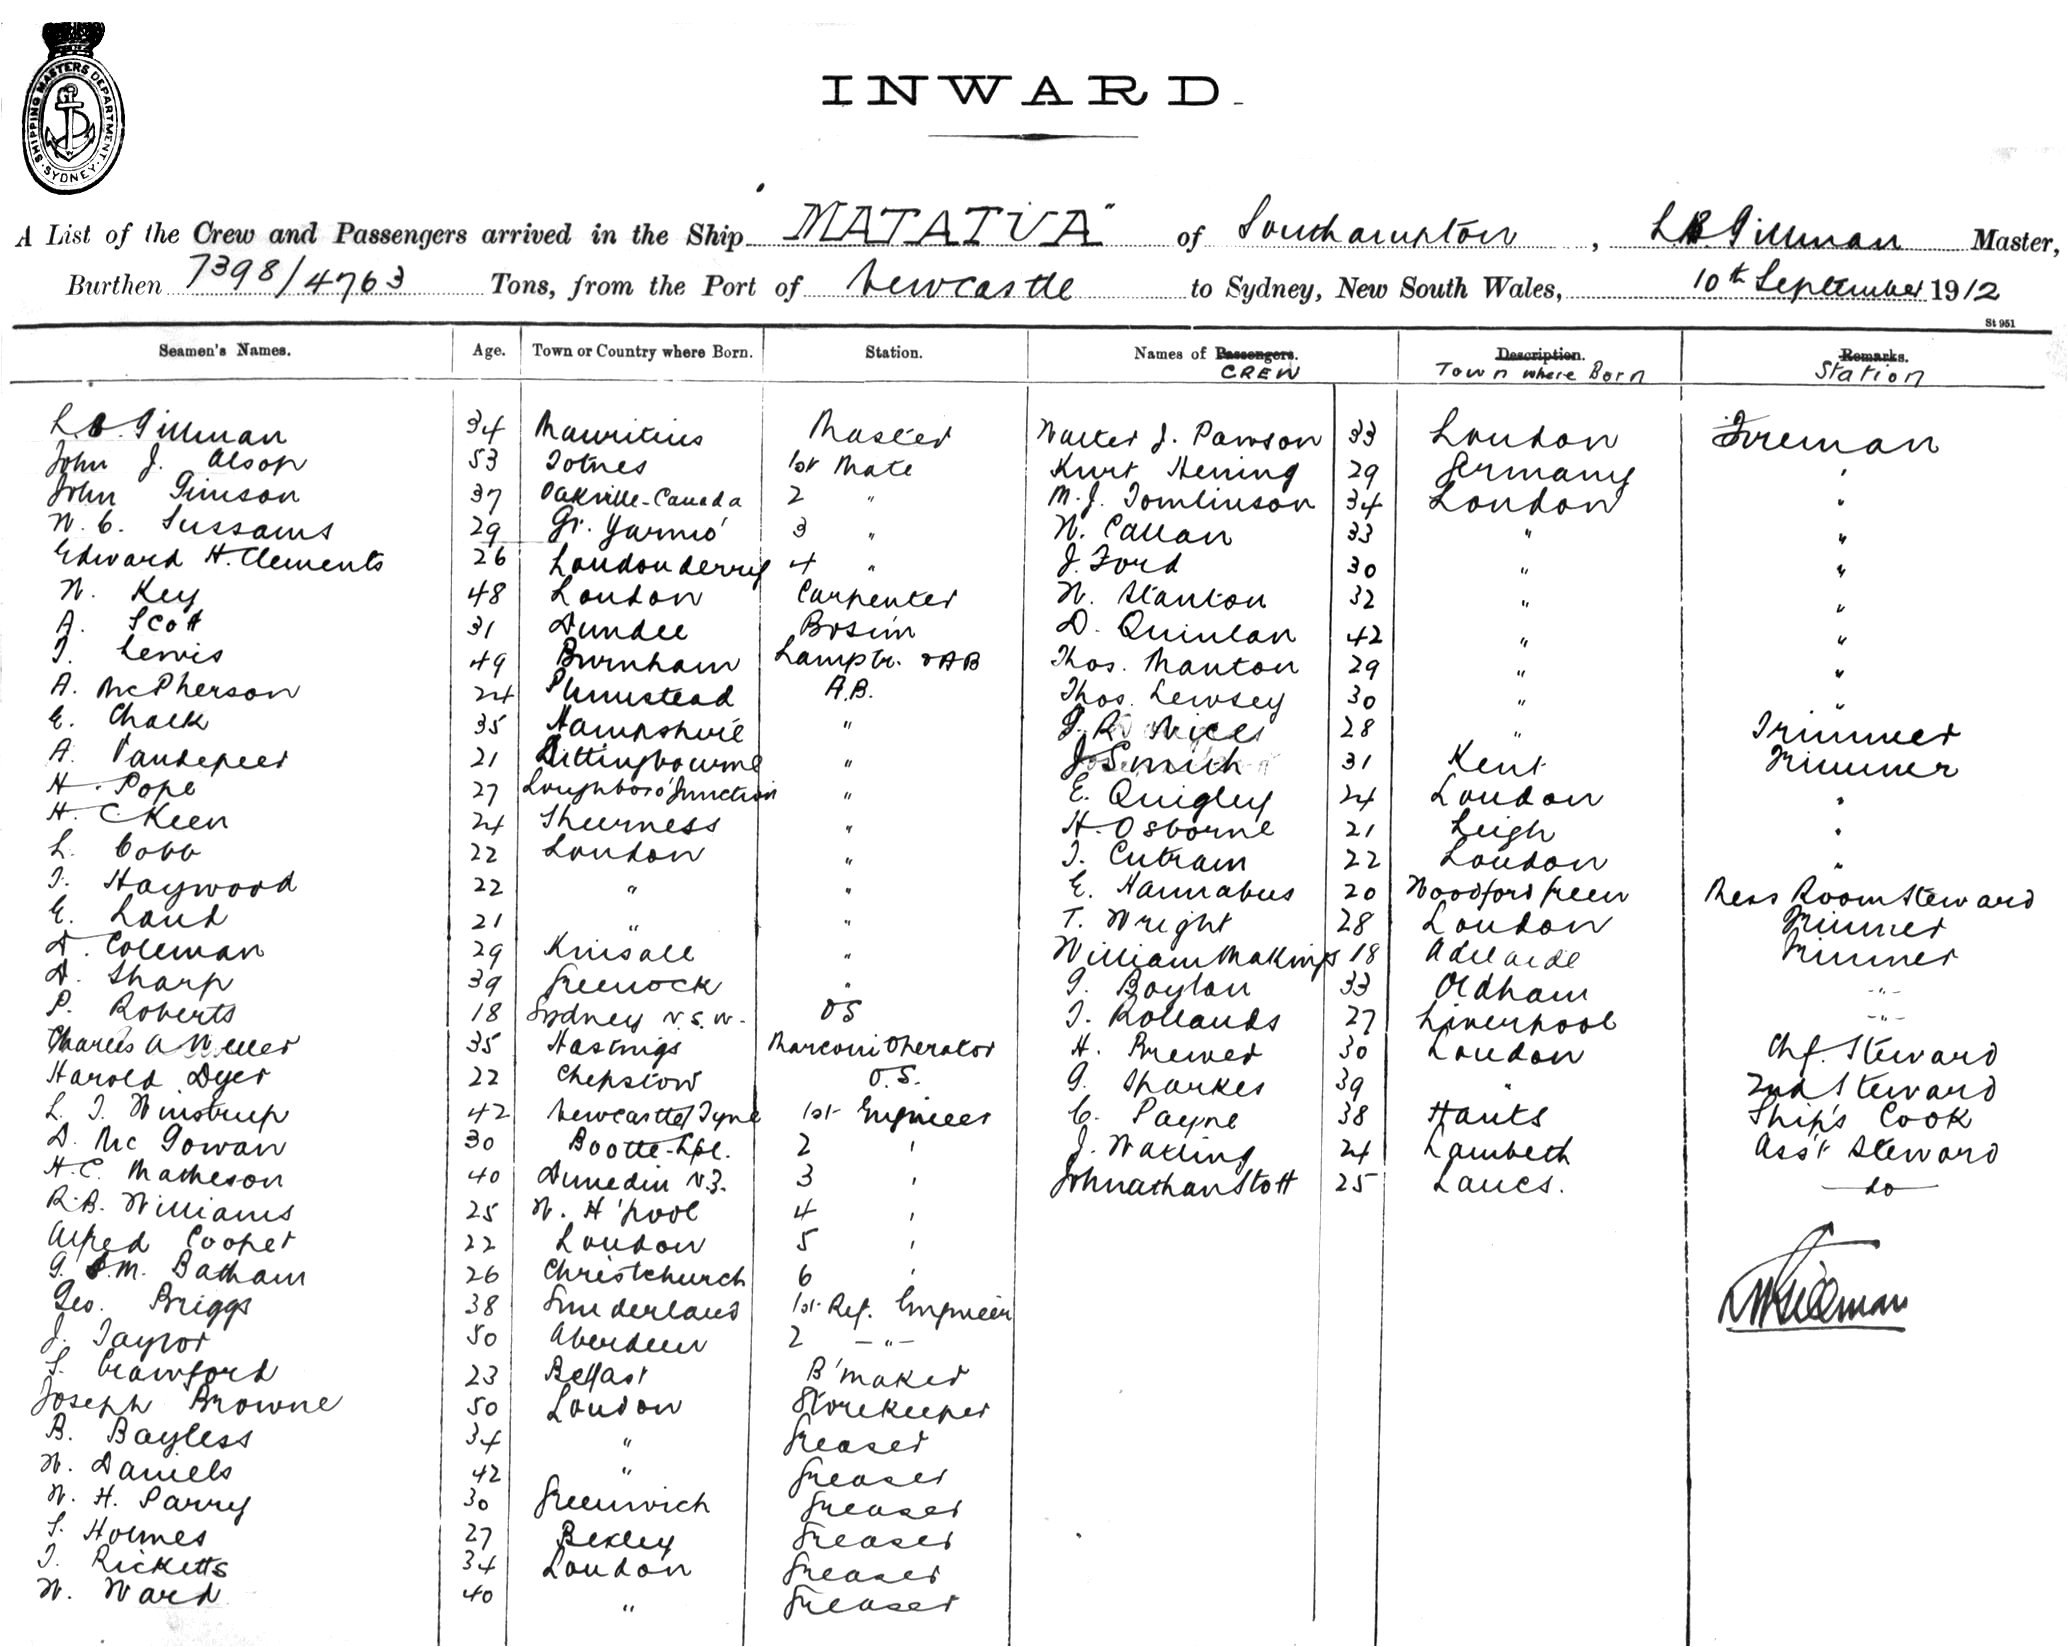 SHIPPING MASTERS DEPARTMENT. SYDNEY.
INWARD.
A List of the Crew and Passengers arrived in the Ship "MATATUA" of Southampton, L.B. Gillman Master,
Burthen 7398/4763 Tons, from the Port of Newcastle to Sydney, New South Wales, 10th September 1912
St 951
Seamen's Names. Age. Town or Country where Born. Station. Names of Passengers. Description. Remarks.
CREW Town where Born Station
L.B. Gillman 34 Mauritius Master Walter J. Pawson 33 London Fireman
John J. Alsop 53 Totnes 1st Mate Kurt Hening 29 Germany "
John Gimson 37 Oakville-Canada 2 " M.J. Tomlinson 34 London "
W. C. Sussams 29 Gt. Yarmo' 3 " W. Callan 33 " "
Edward H. Clements 26 Londonderry 4 " J. Ford 30 " "
W. Key 48 London Carpenter W. Stanton 32 " "
A. Scott 31 Dundee Bosun D. Quinlan 42 " "
T. Lewis 49 Burnham Lamptr. & AB Thos. Manton 29 " "
A. McPherson 24 Plumstead A.B. Thos. Lewsey 30 " "
E. Chalk 35 Hampshire " 28 " Trimmer
A. Vandepeer 21 Sittingbourne " J Smith 31 Kent Trimmer
H. Pope 27 Loughboro' Junction " E. Quigley 24 London "
H. C Keen 24 Sheerness " H. Osborne 21 Leigh "
L. Cobb 22 London " T. Cutram 22 London "
T. Haywood 22 " " E. Hannabus 20 Woodford Green Mess Room Steward
E. Land 21 " " T. Wright 28 London Trimmer
D. Coleman 29 Kinsale " William Makings 18 Adelaide Trimmer
D. Sharp 39 Greenock " G. Boylan 33 Oldham -"-
P. Roberts 18 Sydney N.S.W. OS T. Rollands 27 Liverpool -"-
Charles A 35 Hastings Marconi Operator H. Brewer 30 London Chf. Steward
Harold Dyer 22 Chepstow O.S. G. Sparkes 39 " 2nd Steward
L. T. Winstrup 42 Newcastle/Tyne 1st Engineer C. Payne 38 Hants Ship's Cook
D. Mc Gowan 30 Bootle-Lpl. 2 " J. Watling 24 Lambeth Ass't Steward
H.C. Matheson 40 Dunedin N.Z. 3 " Johnathan Stott 25 Lancs. do
R.B. Williams 25 W. H'pool 4 "
Alfred Cooper 22 London 5 "
G. S.M. Batham 26 Christchurch 6 "
Geo. Briggs 38 Sunderland 1st Ref. Engineer
J. Taylor 50 Aberdeen 2 -"-
S. Crawford 23 Belfast B'maker
Joseph Browne 50 London Storekeeper
B. Bayless 34 " Greaser
W. Daniels 42 " Greaser
W. H. Parry 30 Greenwich Greaser
S. Holmes 27 Bexley Greaser
T. Ricketts 34 London Greaser
W. Ward 40 " Greaser
LB Gillman